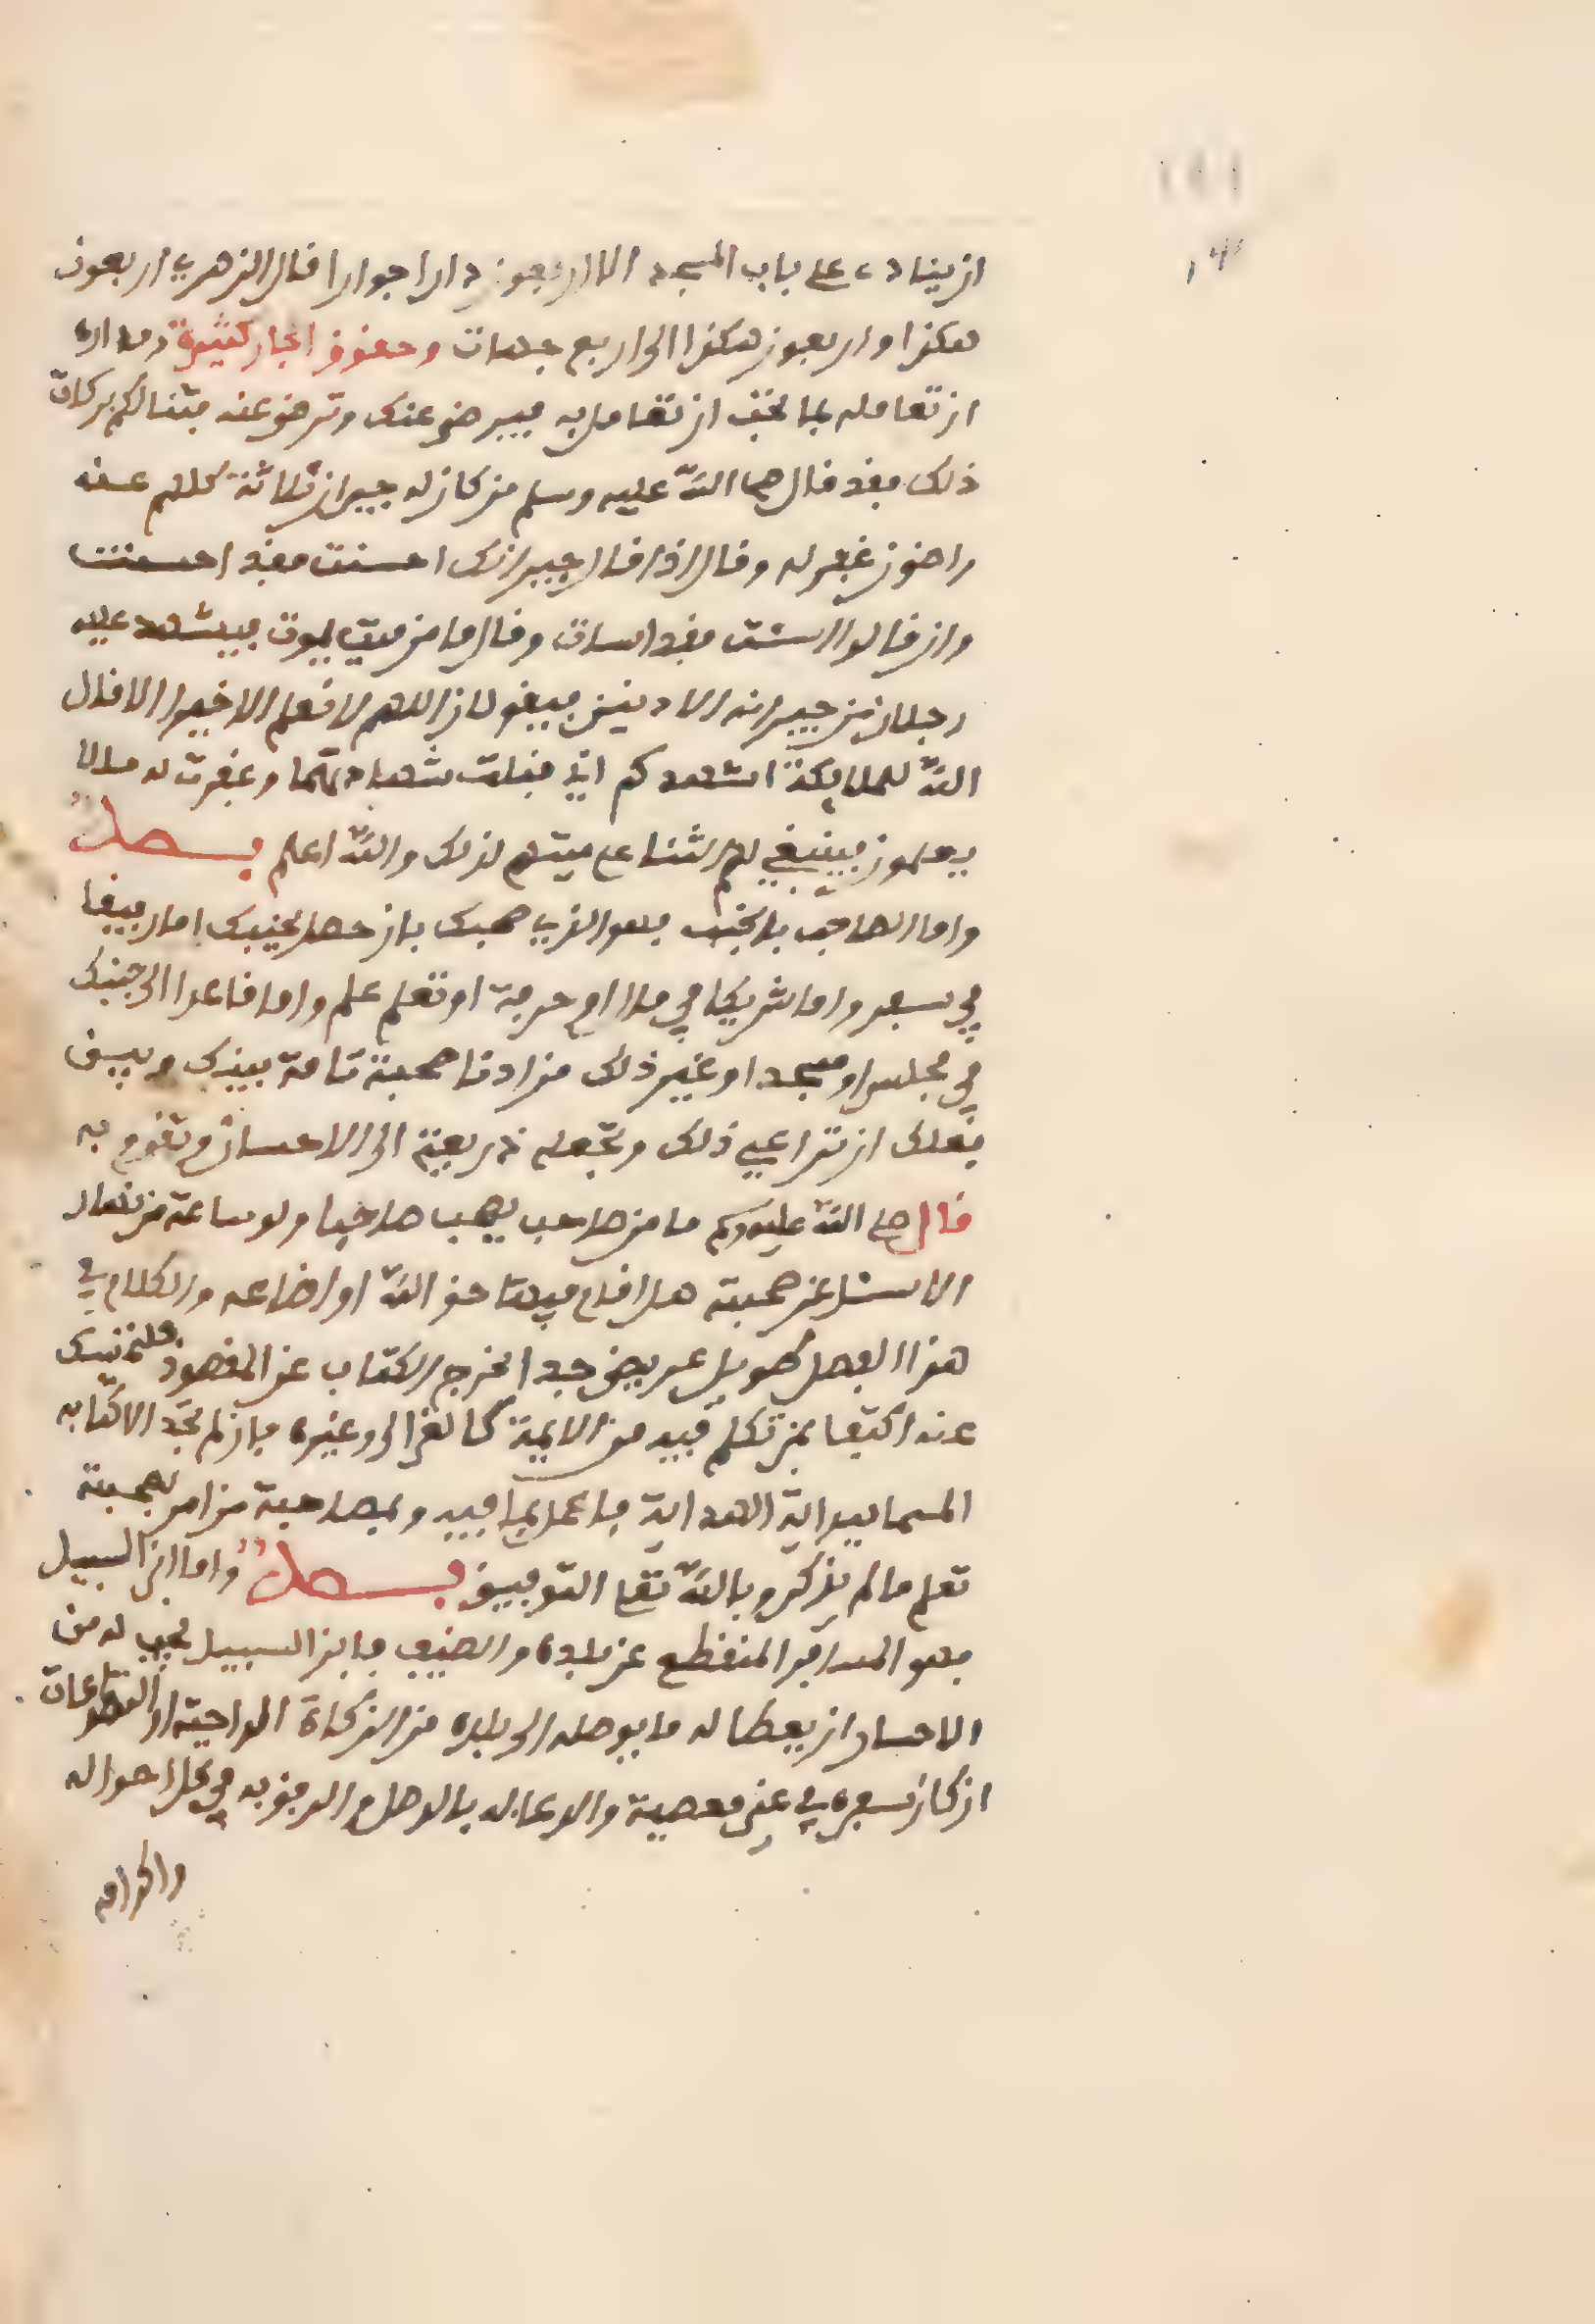 ان ينادى على باب المسجد الا ان اربعون دارا جوارا قال الزهري اربعون
هكذا واربعون هكذا الى اربع جهات وحقوق الجار كثيرة ومداره
ان تعامله بما تحب ان تعامل به فيرضى عنك وترضى عنه فتنالكم بركات
ذلك فقد قال صلى الله عليه وسلم من كان له جيران ثلاثة كلهم عنه
راضون غفر له وقال اذا قال جيرانك احسنت فقد احسنت
وان قالوا اسئت فقد اسات وقال ما من ميت يموت فيشهد عليه
رجلان من جيرانه الادنين فيقولان اللهم لا نعلم الا خيرا الا قال
الله للملايكة اشهدكم اني قبلت شهادتهما وغفرت له ما لا
يعلمون فينبغي لهم الثناء على ميتهم لذلك والله اعلم فصل
واما الصاحب بالجنب فهو الذي صحبك بان حصل بجنبك اما رفيقا
في سفر واما شريكا في مال او حرفة او تعلم علم واما قاعدا الى جنبك
في مجلس او مسجد او غير ذلك من ادنا صحبة تامة بينك وبينه
فعلك ان تراعي ذلك وتجعله ذريعة الى الاحسان وتقوم به
قال صلى الله عليه وسلم ما من صاحب يصحب صاحبا ولو ساعة من نهار
الا سئل عن صحبته هل اقام فيها حق الله او اضاعه والكلام في
هذا الفصل طويل عريض جدا يخرج الكتاب عن المقصود
عنه اكتفا بمن تكلم فيه من الايمة كالغزالي وغيره فان لم تجد الا كتابه
المسما ببداية الهداية فاعمل بما فيه وبمصاحبة من امر بصحبته
تعلم ما لم يذكر وبالله تعالى التوفيق فصل واما ابن السبيل
فهو المسافر المنقطع عن بلده والضيف فابن السبيل يجب له من
الاحسان ان يعطا له ما يوصله الى بلده من الزكاة الواجبة او التطوعات
ان كان سفره في غير معصية والدعا له بالوصل والرفق به في كل احواله
واكرامه